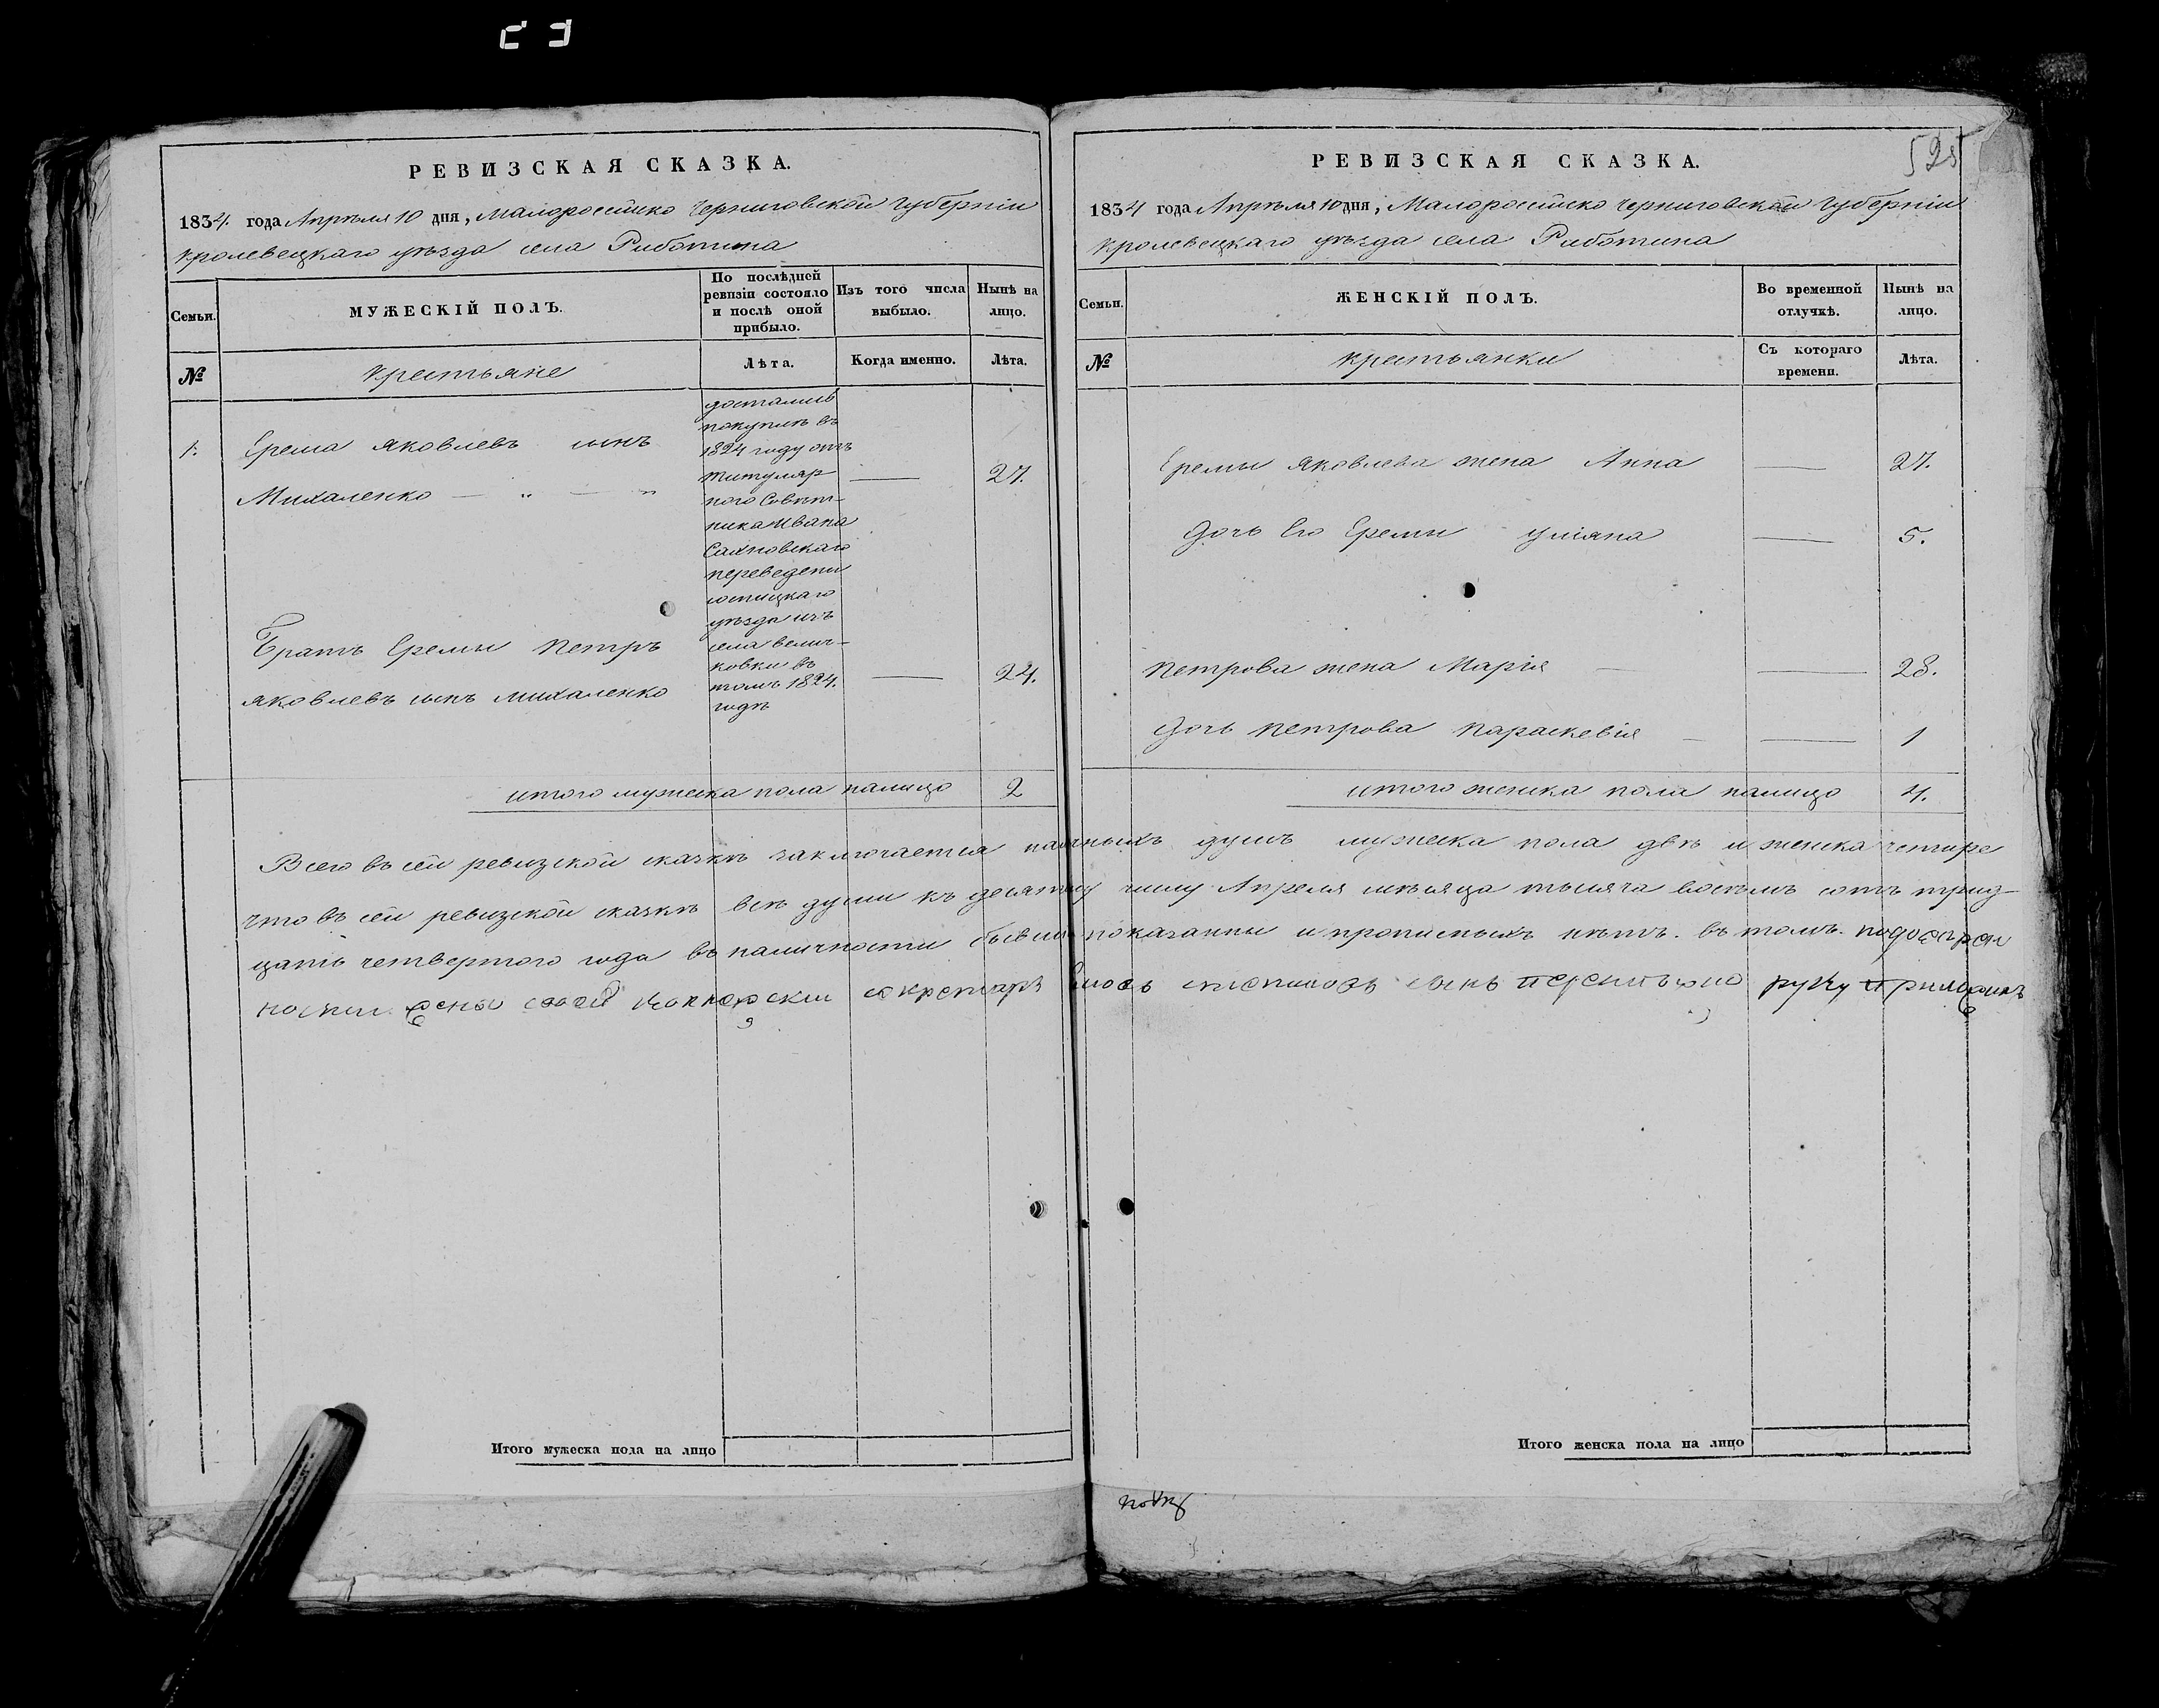 525
РЕВИЗСКАЯ СКАЗКА.
1834. года Апрѣля 10 дня, Малоросейско Черниговской Губерніи
кролевецкаго уѣзда села Работина
Семьи.
МУЖЕСКІЙ ПОЛЪ.
По послѣдней
ревизіи состояло
и послѣ оной
прибыло.
Изъ того числа
выбыло.
Нынѣ на
лицо.
№
крестьяне
Лѣта.
Когда именно.
Лѣта.
1.
Ерема яковлевъ сынъ
Михаленко — „ — „
достались
покупкѣ въ
1824 году отъ
титуляр
ного Совѣт-
ника Ивана
Сахновскаго
переведени
уѣзда изъ
села велич-
ковки въ
томъ 1824.
годѣ
27.
Братъ Еремы петръ
яковлевъ сынъ михаленко
24.
итого мужеска пола налицо 2
РЕВИЗСКАЯ СКАЗКА.
1834 года Апрѣля 10 дня, Малоросейско черниговской Губерніи
кролевецкаго уѣзда села Работина
Семьи.
ЖЕНСКІЙ ПОЛЪ.
Во временной
отлучкѣ.
Нынѣ на
лицо.
№
крестьянки
Съ котораго
времени.
Лѣта.
Еремы яковлева жена Анна — 27.
дочь Его Еремы уліяна — 5.
петрова жена Марія — 28.
дочь петрова параскевія — 1
итого женска пола налицо 4.
Всего въ сей ревизской сказкѣ заключается душъ мужеска пола двѣ и женска четыре
что въ сей ревизской сказкѣ всѣ души къ десятому числу Апреля мѣсяца тысяча восемъ сотъ трид-
цать четвертого года въ наличности бывши показанны и прописныхъ нѣтъ. въ томъ.
секретарь сынъ руку
Итого мужеска пола на лицо
Итого женска пола на лицо